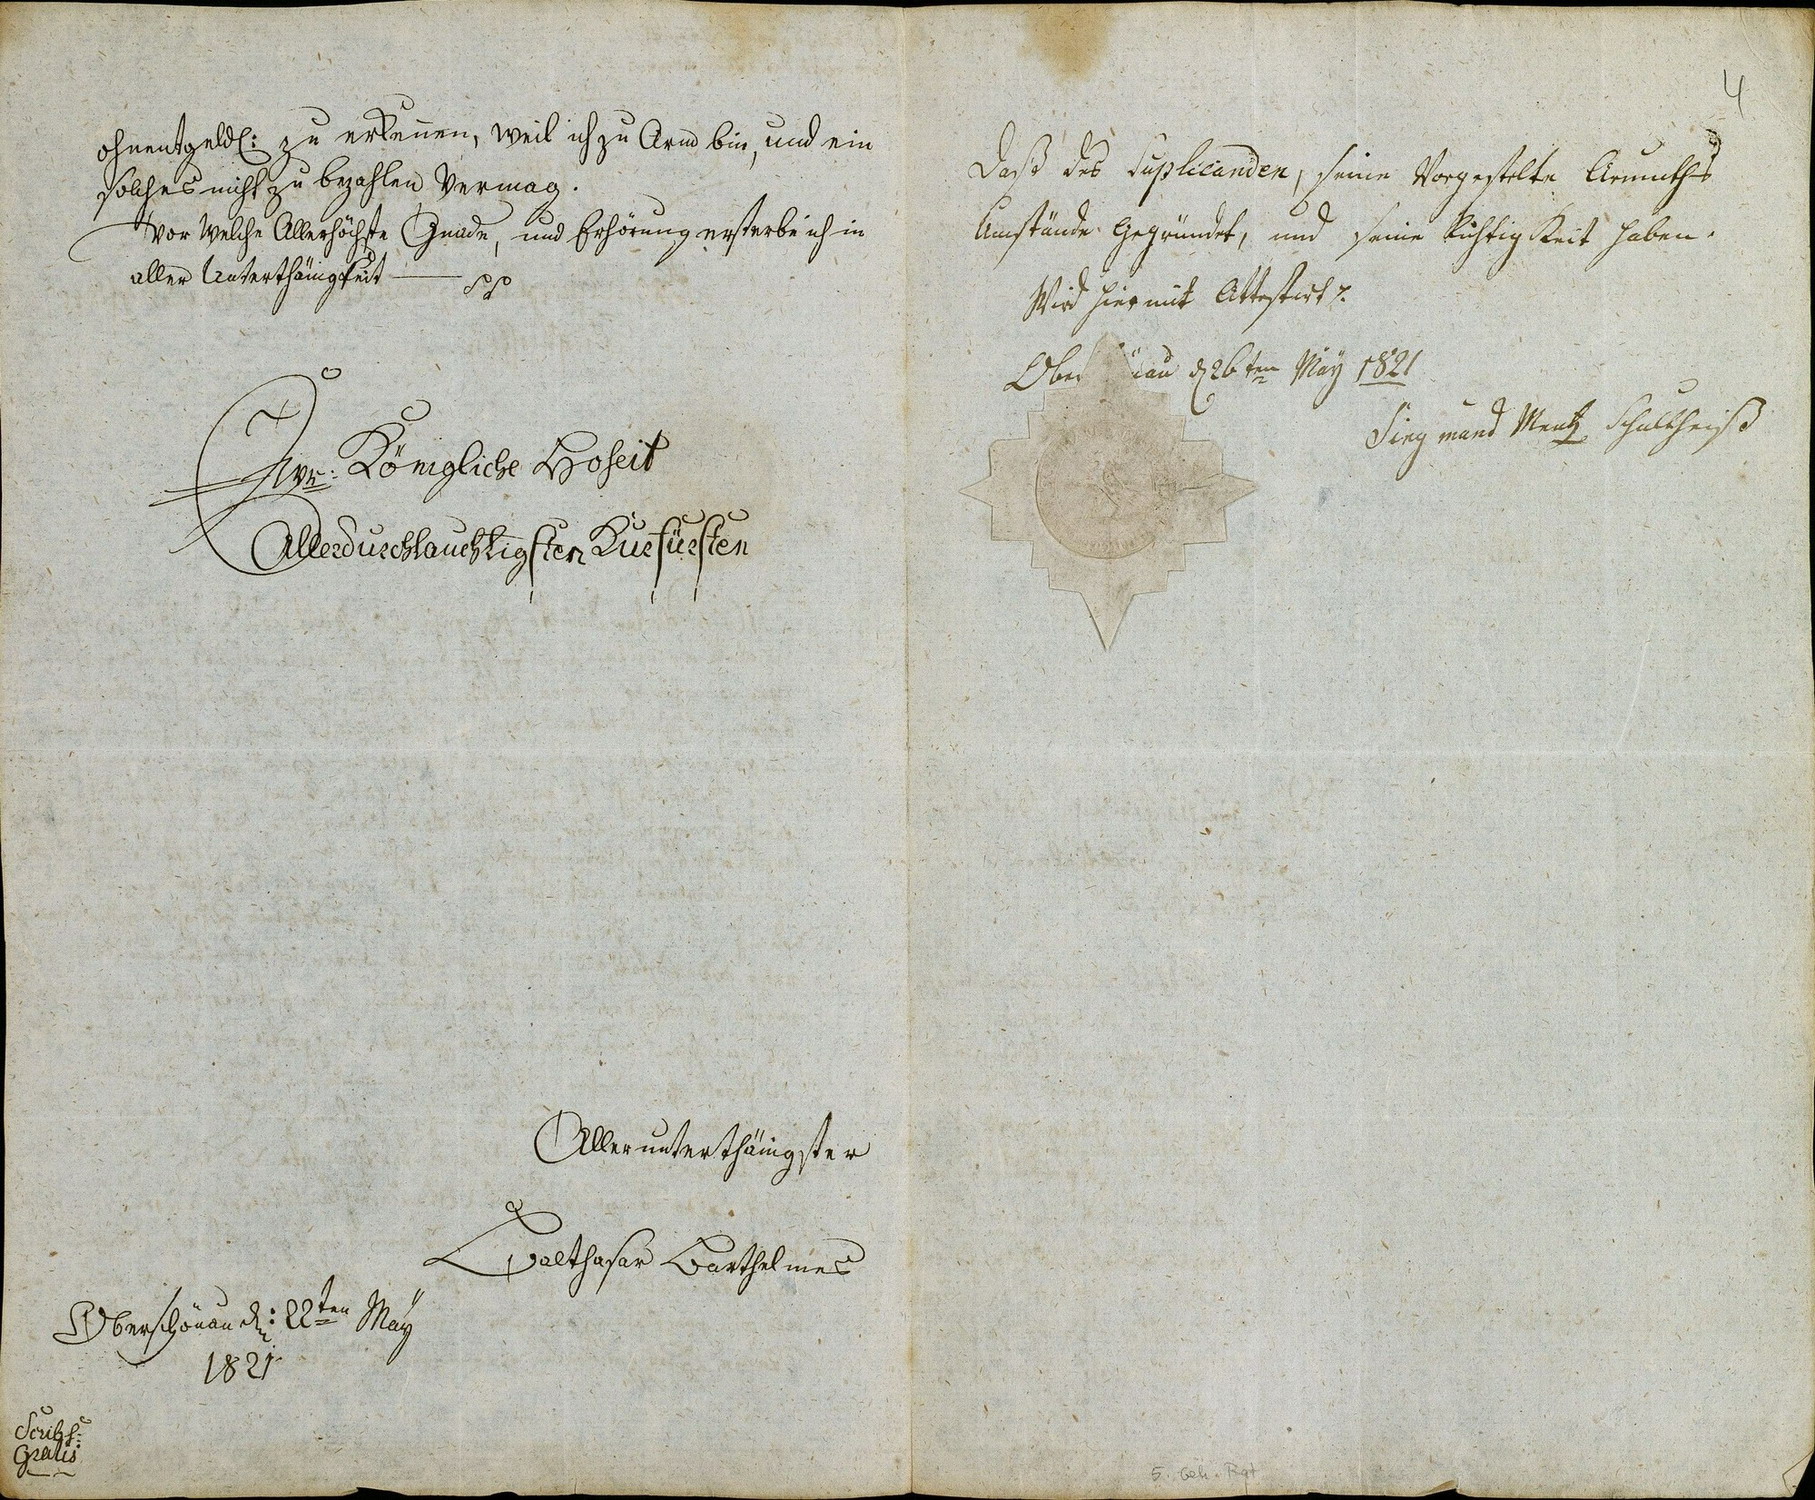 ohnentgeldl: zu erkennen, weil ich zu Arm bin, und ein
solches nicht zu bezahlen Vermag.
Vor Welche Allerhöchste Gnade, und Erhörung ersterbe ich in
aller Unterthänigkeit
Königliche Hoheit
Allerdurchlauchtigsten Kurfürsten
Allerunterthänigster
Balthasar Barthelmes
Oberschönau d: 22ten May
1821
Gratis
4
Daß des Suplicanden, seine Vorgestelte Armuths
Umstände gegründet, und seine Richtigkeit haben.
Wird hiermit Attestirt
Ober nau d 26ten May 1821
Siegmund Mentz Schultheiß